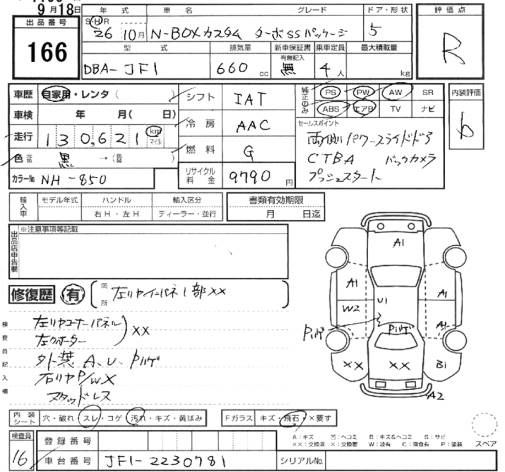 9月18日
出品番号
166
年式 車名 グレード ドア・形状
26年 10月 N-BOXカスタム ターボSSパッケージ 5
型式 排気量 新車保証書 乗車定員 最大積載量
有無記入
DBA-JF1 660cc 無 4人 kg
評価点
R
車歴 自家用・レンタ( )
車検 年 月( 日)
走行 130,621 km マイル
色 黒 → (色)
カラーNo NH-850
シフト IAT
冷房 AAC
燃料 G
リサイクル料金 9790円
純正のみ PS PW AW SR
ABS エアB TV ナビ
セールスポイント
両側パワースライドドア
CTBA バックカメラ
プッシュスタート
内装評価
b
輸入車 モデル年式 ハンドル 輸入区分
右H・左H ディーラー・並行
書類有効期限
月 日迄
出品店申告欄
※注意事項等記載
修復歴 有
箇所 左リヤインパネ1部XX
検査員記入欄
左リヤコーナーパネル
左クォーター XX
外装 A、U、Pハゲ
右リヤP/WX
スタッドレス
A1
A1 A1
W2 U1
Pハゲ Pハゲ
XX XX B1
A2
内装シート 穴・破れ スレ・コゲ 汚れ・キズ・黄ばみ
Fガラス キズ・飛石・X要す
A:キズ U:ヘコミ B:キズ&ヘコミ S:サビ
X:交換要 XX:交換済 W:波有 C:腐食有 P:塗装
スペア
検査員
16
登録番号
車台番号 JF1-2230781
シリアルNo.